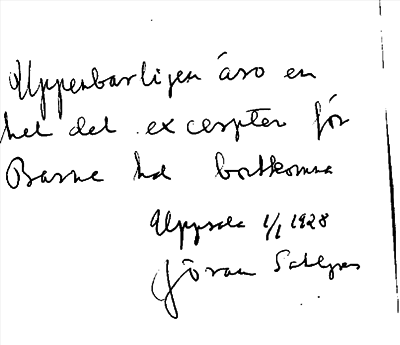 Uppenbarligen äro en
hel del excerpter för
Barne hd bortkomna
Uppsala 1/1 1928
Jöran Sahlgren